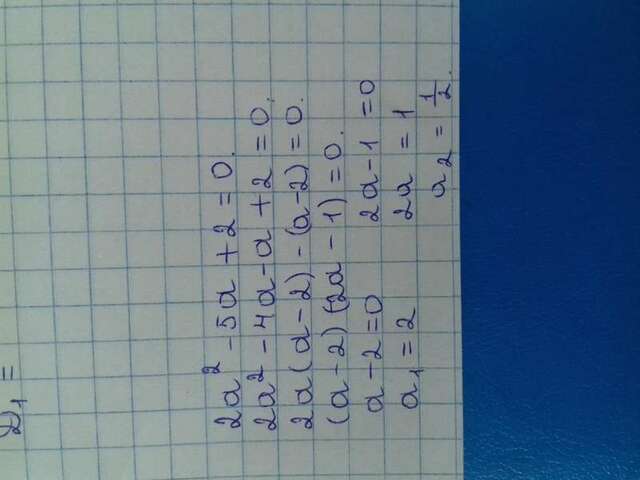 D₁ =
2a² - 5a + 2 = 0.
2a² - 4a - a + 2 = 0.
2a(a - 2) - (a - 2) = 0.
(a - 2)(2a - 1) = 0.
a - 2 = 0 2a - 1 = 0
a₁ = 2 2a = 1
a₂ = 1/2.